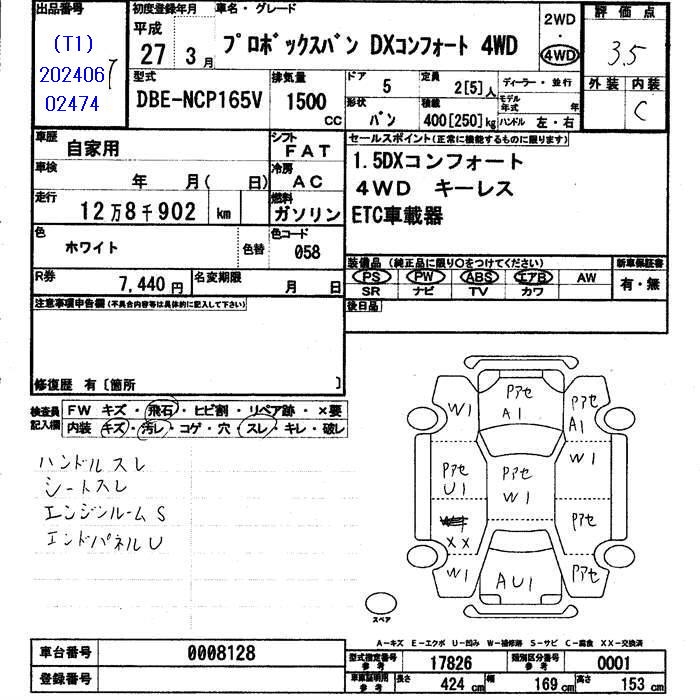 出品番号
(T1)
202406
7
02474
初度登録年月
平成
27年 3月
車名・グレード
プロボックスバン DXコンフォート 4WD
2WD
・
4WD
評価点
3.5
外装 内装
C
型式
DBE-NCP165V
排気量
1500
CC
ドア 5
定員 2[5]人
形状 バン
積載 400[250]kg
ディーラー・並行
モデル年式 年
ハンドル 左・右
車歴 自家用
シフト FAT
車検 年 月( 日)
冷房 AC
走行 12万8千902 km
燃料 ガソリン
色 ホワイト 色替
色コード 058
R券 7,440円
名変期限 月 日
セールスポイント(正常に機能するものに限ります)
1.5DXコンフォート
4WD キーレス
ETC車載器
装備品(純正品に限り○をつけてください)
PS PW ABS エアB AW
SR ナビ TV カワ
新車保証書
有・無
後日品
注意事項申告欄(不具合内容等は具体的に記入して下さい)
修復歴 有〔箇所 〕
検査員記入欄
FW キズ・飛石・ヒビ割・リペア跡・×要
内装 キズ・汚レ・コゲ・穴・スレ・キレ・破レ
ハンドルスレ
シートスレ
エンジンルームS
エンドパネルU
W1
PアセA1
PアセA1
W1
PアセU1
PアセW1
XX
Pアセ
W1
AU1
Pアセ
スペア
A-キズ E-エクボ U-凹み W-補修跡 S-サビ C-腐食 XX-交換済
車台番号 0008128
登録番号
型式指定番号 参考 17826
類別区分番号 参考 0001
車庫証明用 参考
長さ 424 cm
幅 169 cm
高さ 153 cm